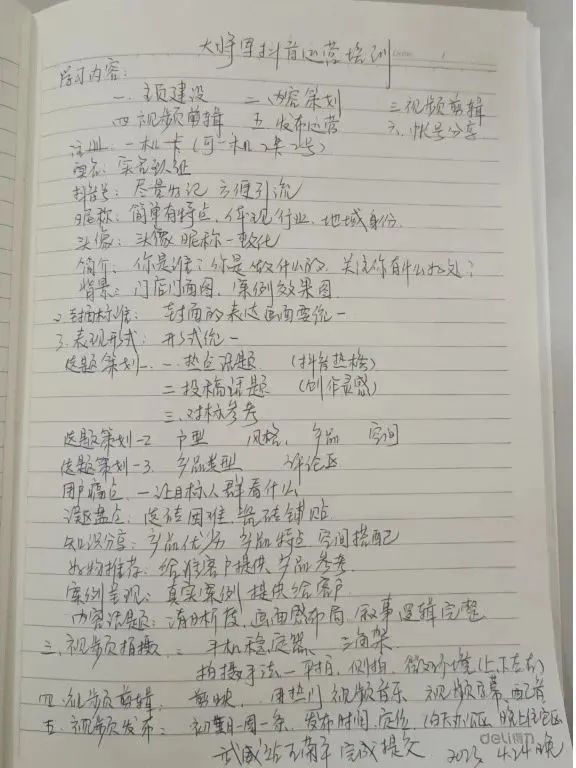 大将军抖音运营培训
学习内容:
一. 主页建设 二. 内容策划 三. 视频剪辑
四. 视频剪辑 五. 发布运营 六. 帐号分享
注册: 一机一卡 (可一机2卡2号)
实名认证
抖音号: 尽量好记 方便引流
昵称: 简单有特点, 体现行业, 地域身份.
头像: 头像昵称一致化
简介: 你是谁? 你是做什么的, 关注你有什么好处?
背景: 门店门面图, 案例效果图.
2. 封面标准: 封面的表达画面要统一
3. 表现形式: 形式统一
选题策划一. 一. 热点话题 (抖音热榜)
二 投稿话题 (创作灵感)
三. 对标参考
选题策划-2 户型 风格, 产品 空间
选题策划-3. 产品类型 评论区
用户痛点. 一让目标人群看什么
误区盘点: 选砖困难, 瓷砖铺贴
知识分享: 产品优劣 产品特点 空间搭配
好物推荐: 给准客户提供产品参考
案例呈现: 真实案例 提供给客户
内容话题: 清晰度, 画面感布局, 叙事逻辑完整
三. 视频拍摄: 手机稳定器 三角架
拍摄手法一平拍, 侧拍, (上下左右)
四. 视频剪辑, 剪映, 用热门视频音乐 视频字幕, 配音
五. 视频发布: 初期一周一条, 发布时间, 定位, 白天办公区 晚上住宅区
完成提交 2023 4.24晚
deli